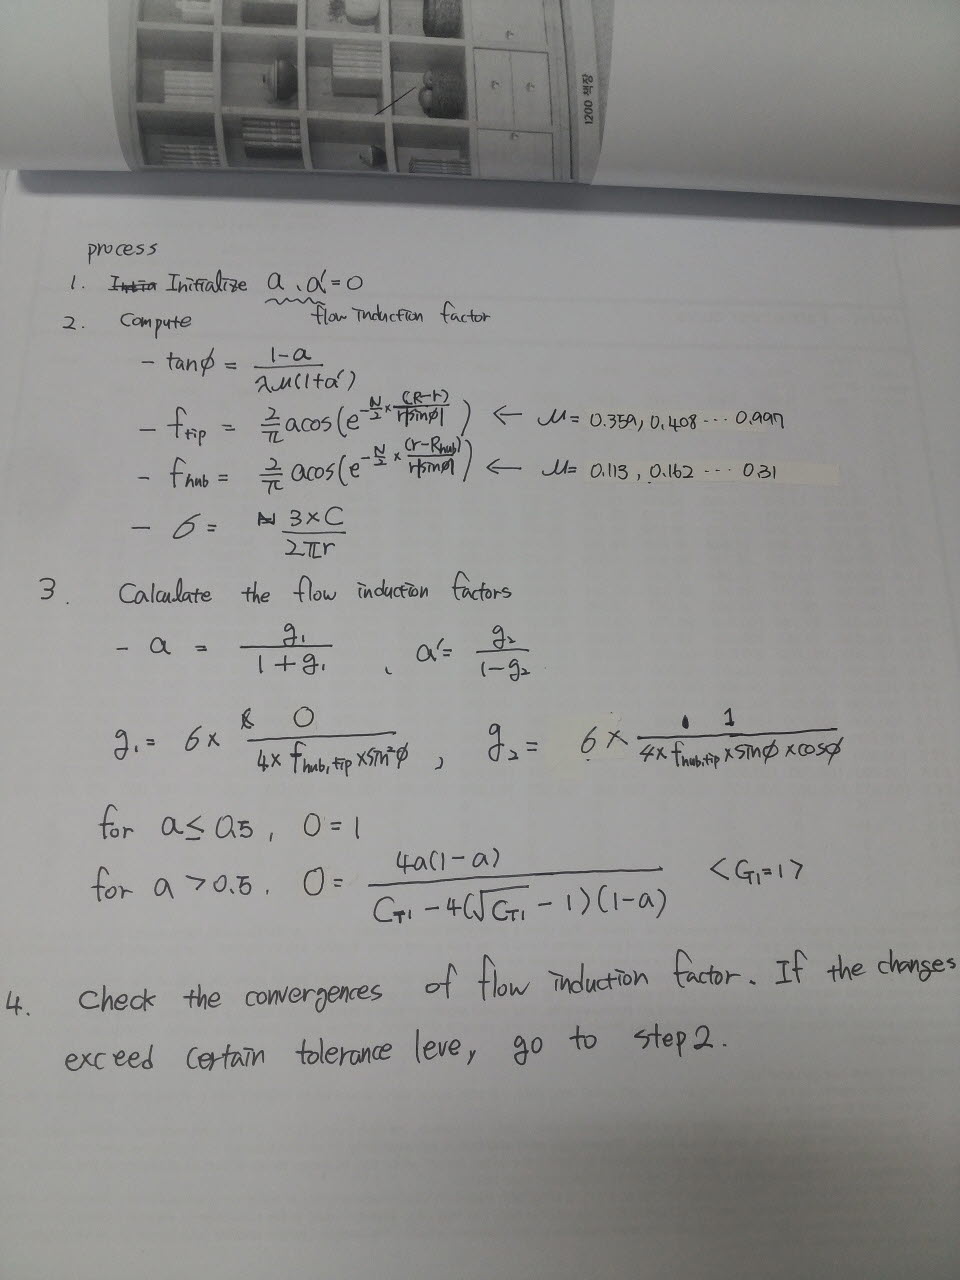 장롱 1200
process
1. Initialize a, a' = 0
flow induction factor
2. Compute
- tanϕ = (1-a) / (λμ(1+a'))
- f_tip = 2/π acos(e^(-N/2 × (R-r)/(r|sinϕ|))) ← μ = 0.359, 0.408 ··· 0.997
- f_hub = 2/π acos(e^(-N/2 × (r-R_hub)/(r|sinϕ|))) ← μ = 0.113, 0.162 ··· 0.31
- σ = (3×C) / (2πr)
3. Calculate the flow induction factors
- a = g₁ / (1+g₁), a' = g₂ / (1-g₂)
g₁ = σ × O / (4× f_hub,tip ×sin²ϕ), g₂ = σ × 1 / (4× f_hub,tip ×sinϕ ×cosϕ)
for a ≤ 0.5, O = 1
for a > 0.5, O = 4a(1-a) / (C_T1 - 4(√C_T1 - 1)(1-a)) <C_T1 = 1>
4. Check the convergences of flow induction factor. If the changes
exceed certain tolerance leve, go to step 2.